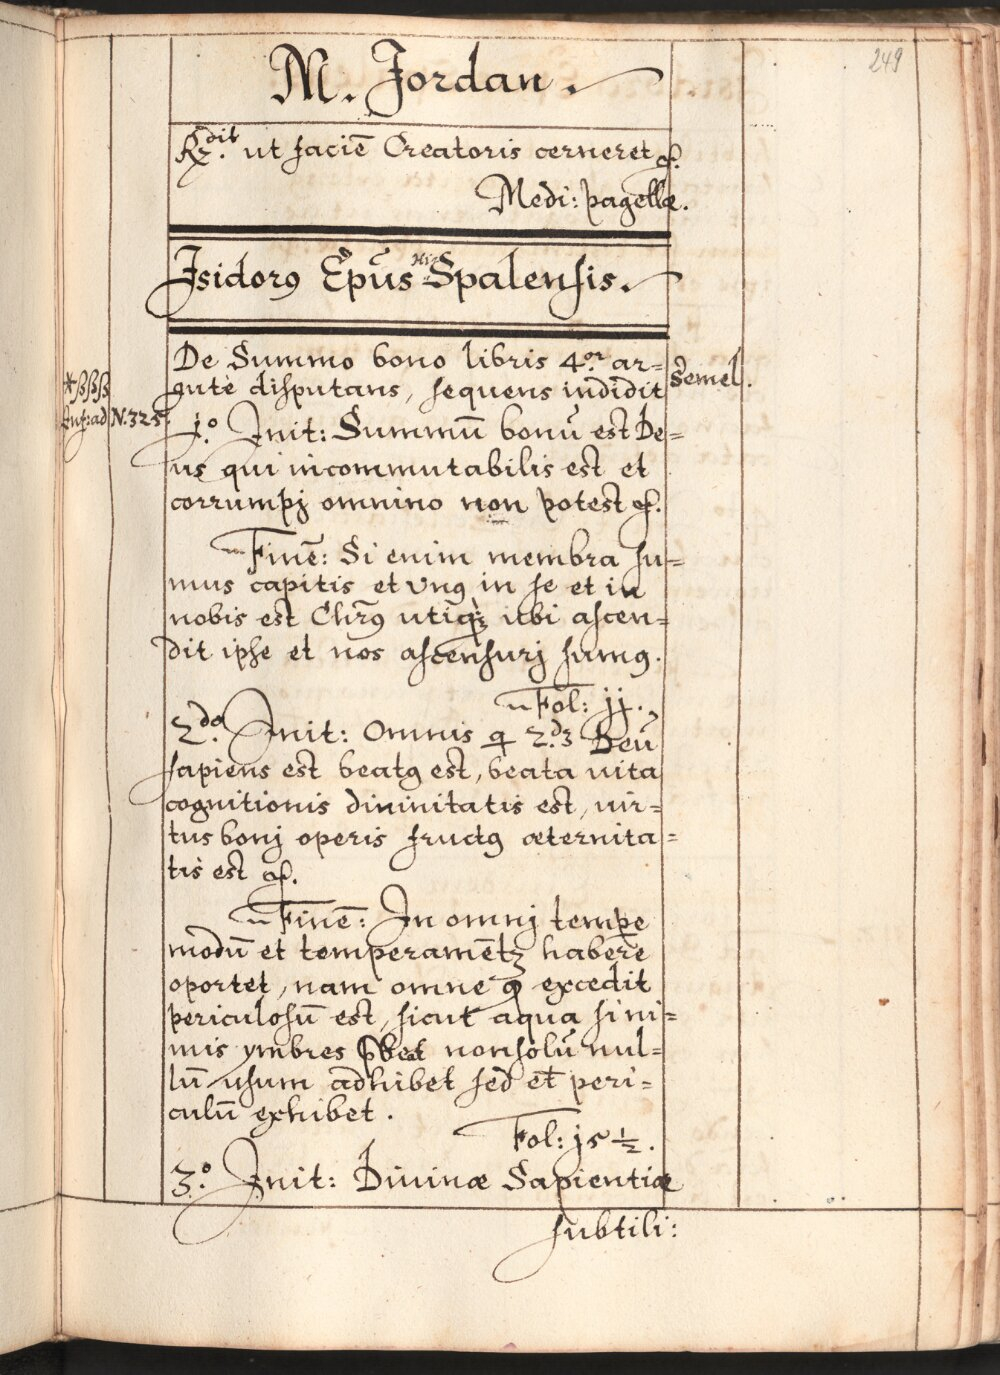 249
M. Jordan.
R.dit ut faciē Creatoris cerneret &.
Medi: pagellæ.
Isidor9 Epūs Hi-Spalensis.
De Summo bono libris 4.or ar=
gutè disputans, sequens indidit
Semel.
*βββ
N.325.
1.o Init: Summū bonū est De=
us qui incommutabilis est et
corrumpj omnino non potest &.
Finē: Si enim membra su=
mus capitis et vn9 in se et in
nobis est Chrū9 utiq; ubi ascen=
dit ipse et nos ascensurj sum9.
Fol: jj.
2.do Init: Omnis q 2.dz Deū
sapiens est beat9 est, beata uita
cognitionis diuinitatis est, uir=
tus bonj operis fruct9 æternita=
tis est &.
Finē: In omnj tempe
modū et temperamētz habere
oportet, nam omne q excedit
periculosū est, sicut aqua si ni=
mis ymbres nonsolū nul=
lū usum adhibet sed et peri=
culū exhibet.
Fol: j5 ½.
3.o Init: Diuinæ Sapientiæ
subtili: